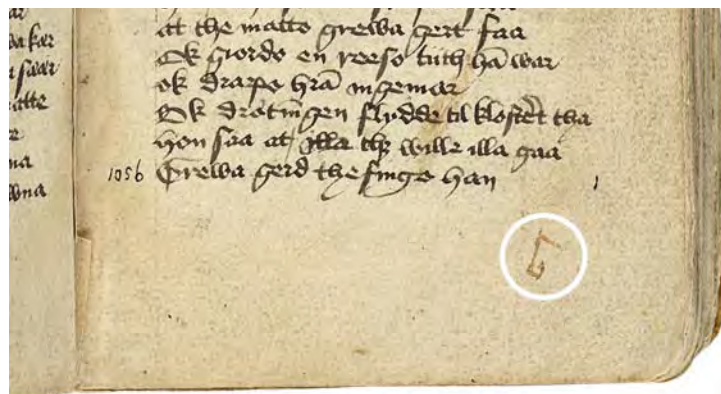 at the matto grewa gert faa
Ok giordo en reeso tiith hā war
ok drapo hrā ingemar
Ok drotnīgen flydde til klostret tha
hon saa at illa thz wille illa gaa
1056 Grewa gerd the fingo han